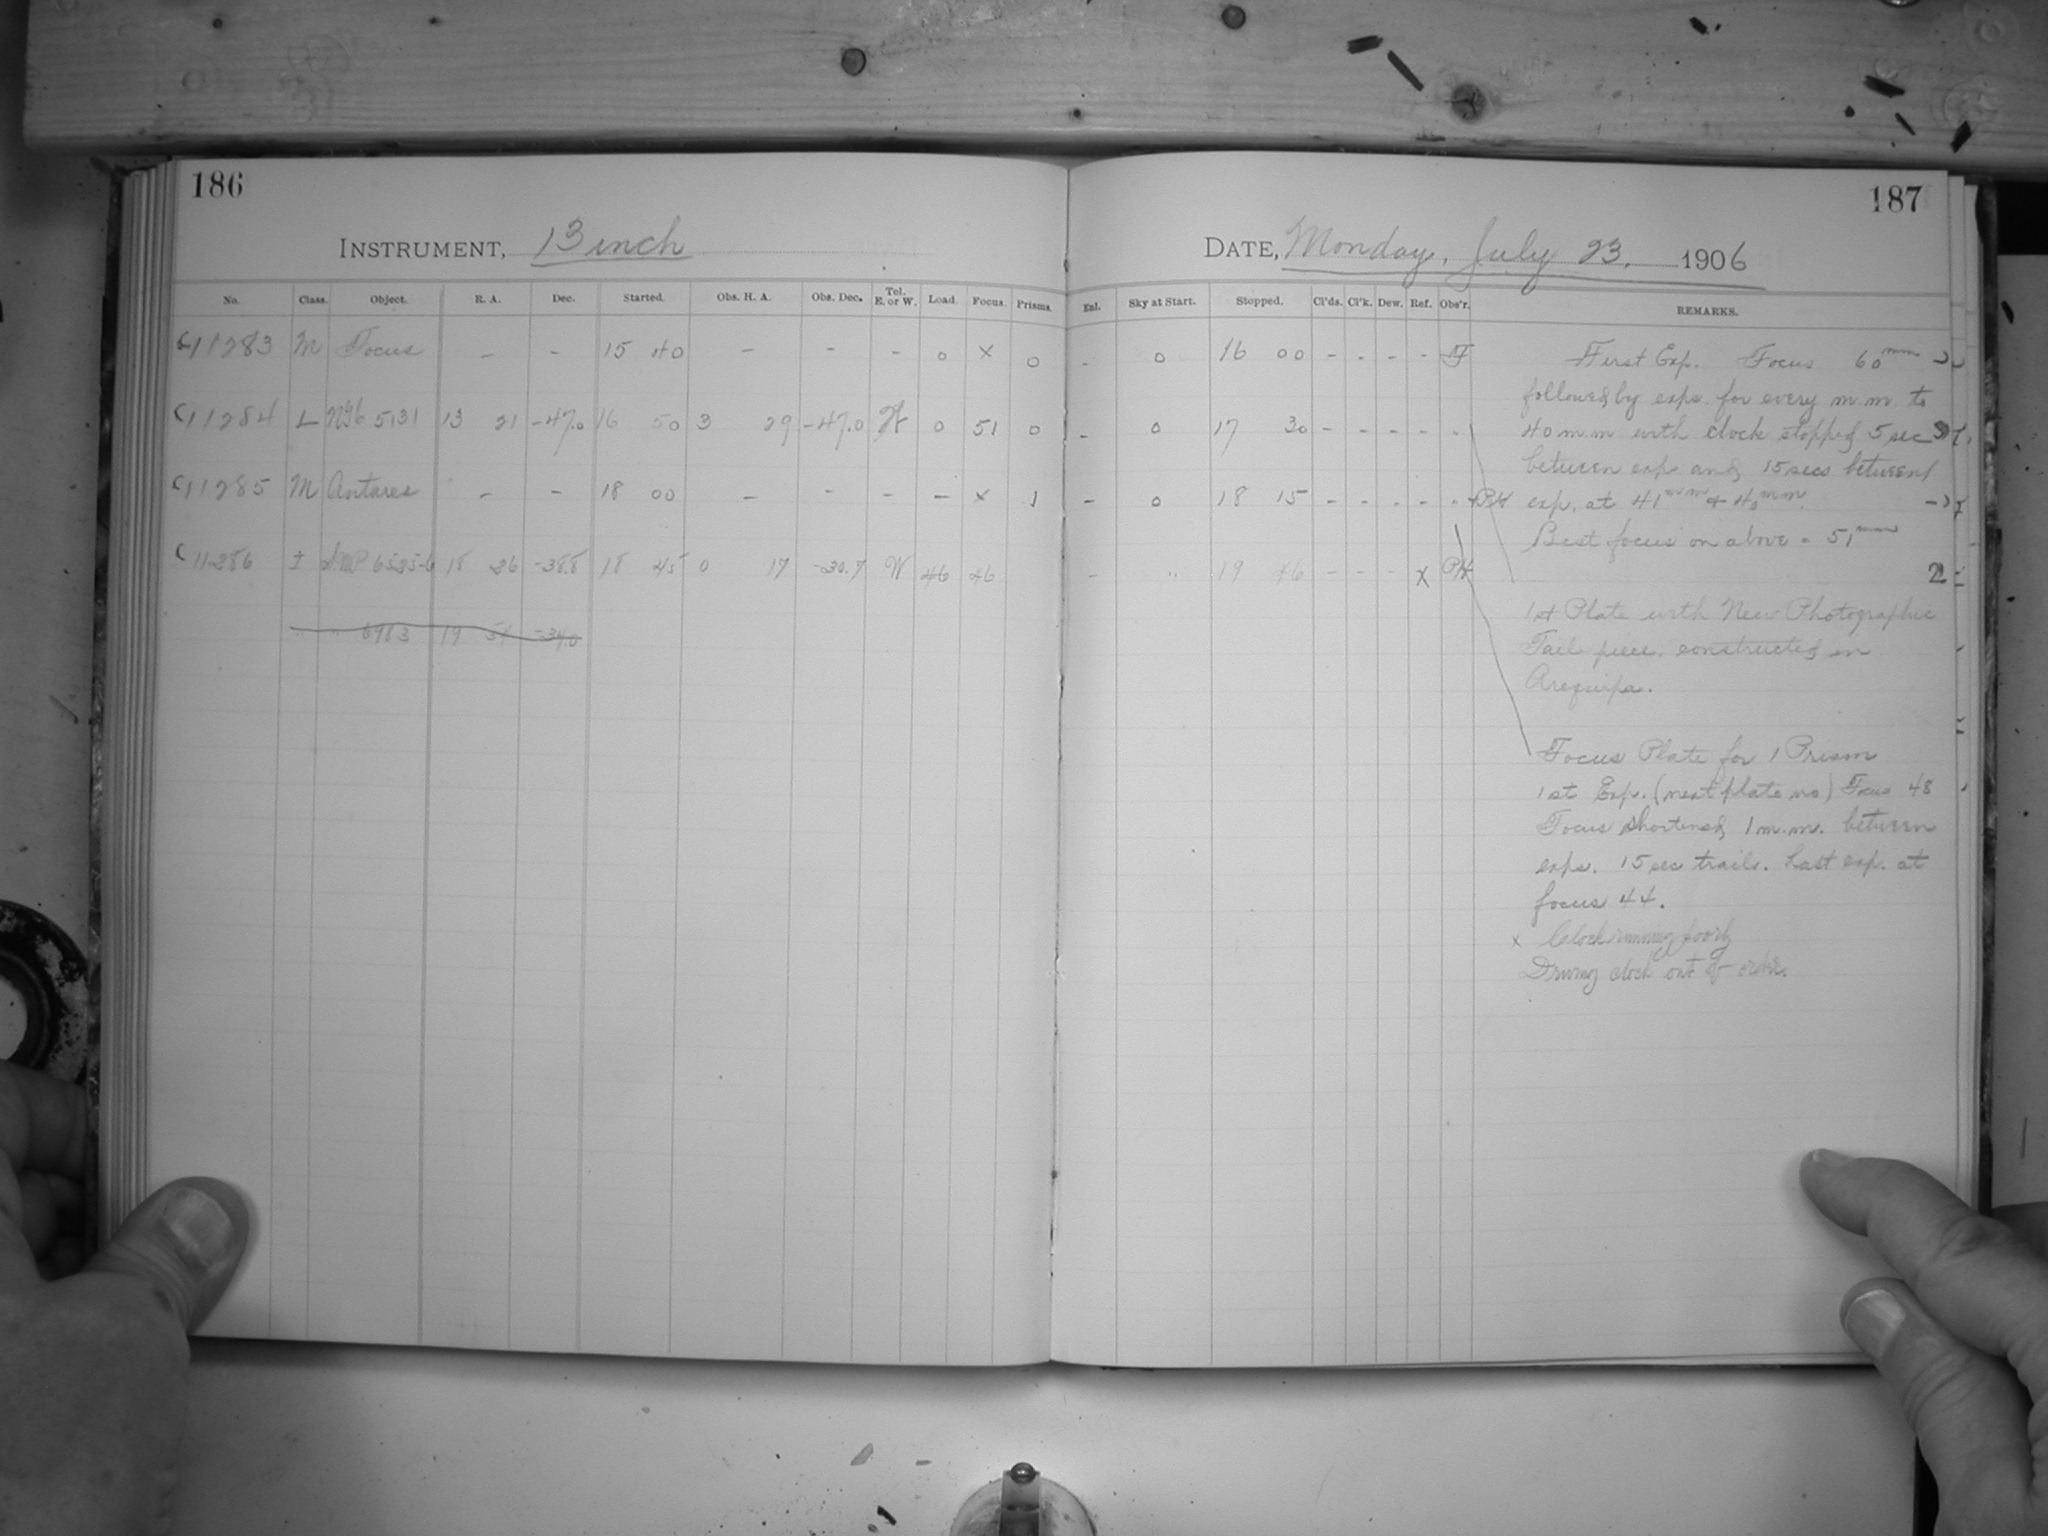 186
187
INSTRUMENT, 13 inch
DATE, Monday, July 23, 1906
No. Class. Object. R. A. Dec. Started. Obs. H. A. Obs. Dec. Tel. E. or W. Load. Focus. Prisms.
Enl. Sky at Start. Stopped. Cl'ds. Cl'k. Dew. Ref. Obs'r. REMARKS.
C11283 M Focus - - 15 40 - - - 0 x 0 - 0 16 00 - - - - F
C11284 L 5131 13 21 -47.0 16 50 3 29 -47.0 W 0 51 0 - 0 17 30 - - - -
C11285 M Antares - - 18 00 - - - - x 1 - 0 18 15 - - - -
C11286 18 26 -38.8 18 45 0 17 -30.7 W 46 46 - " 19 46 - - - x 2
" " 6983 19 54 -34.0
First Exp. Focus 60mm
followed by exps. for every m.m. to
40 m.m with clock stopped 5 sec
between exps. and 15 secs between
exp. at 41mm + 40mm.
Best focus on above = 51mm
1st Plate with New Photographic
Tail piece, constructed in
Arequipa.
Focus Plate for 1 Prism
1st Exp. (next plate no) Focus 48
Focus shortened 1 m.m. between
exps. 15 sec trails. Last exp. at
focus 44.
x Clock running poorly
Driving clock out of order.